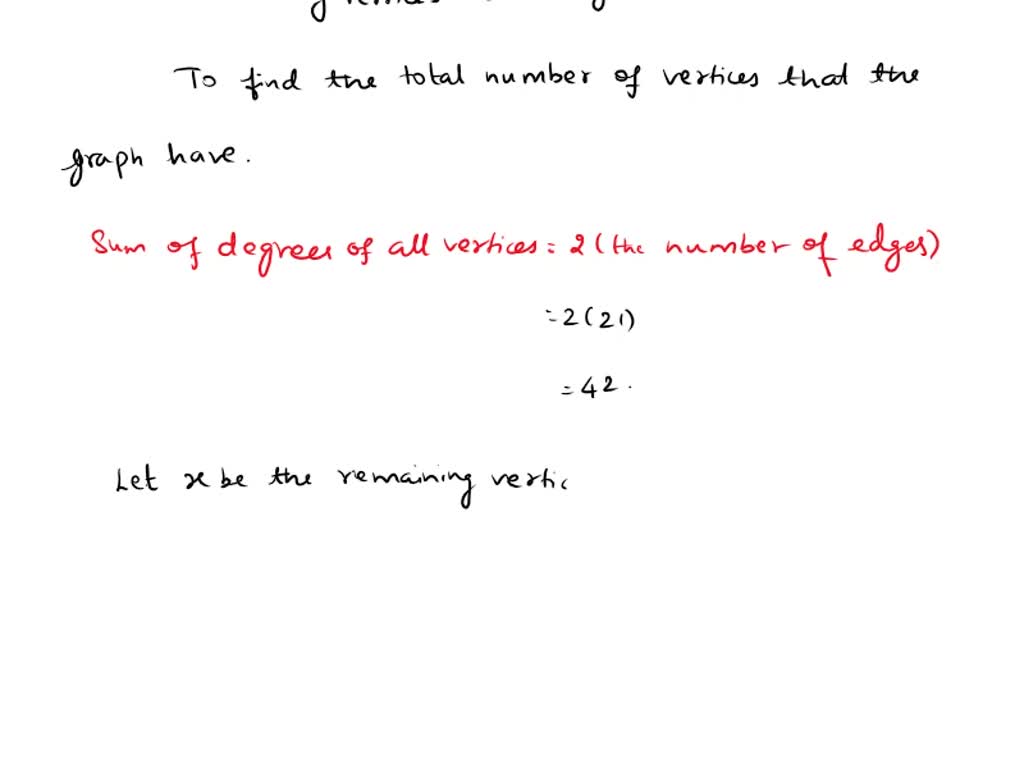 To find the total number of vertices that the
graph have.
Sum of degrees of all vertices = 2 (the number of edges)
= 2(21)
= 42.
Let x be the remaining vertic